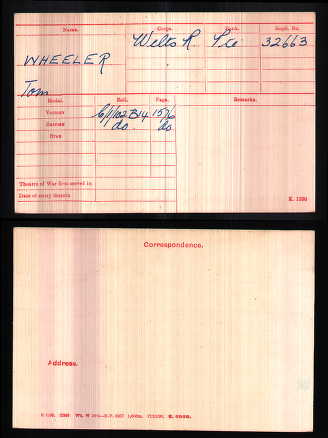 Name. Corps. Rank. Regtl. No.
Wilts R. Pte 32663
WHEELER
Tom
Medal. Roll. Page. Remarks.
Victory 1576
British do. do
Star
Theatre of War first served in
Date of entry therein
K. 1380
Correspondence.
Address.